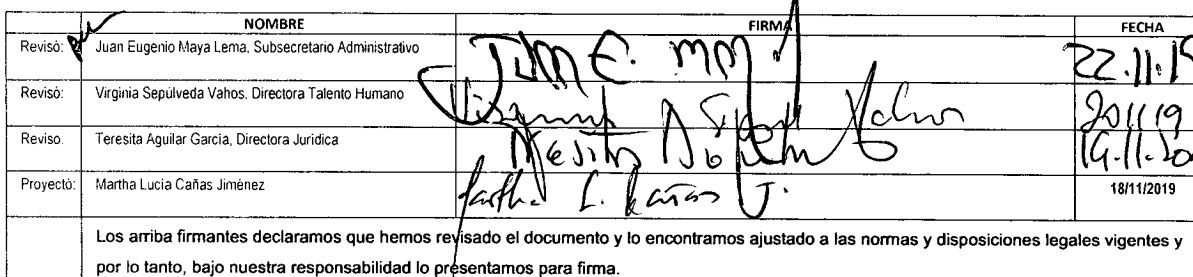 NOMBRE FIRMA FECHA
Revisó: Juan Eugenio Maya Lema, Subsecretario Administrativo 22.11.19
Revisó: Virginia Sepúlveda Vahos, Directora Talento Humano 201119
Reviso. Teresita Aguilar García, Directora Jurídica
Proyectó: Martha Lucia Cañas Jiménez Martha L. Cañas J. 18/11/2019
Los arriba firmantes declaramos que hemos revisado el documento y lo encontramos ajustado a las normas y disposiciones legales vigentes y
por lo tanto, bajo nuestra responsabilidad lo presentamos para firma.